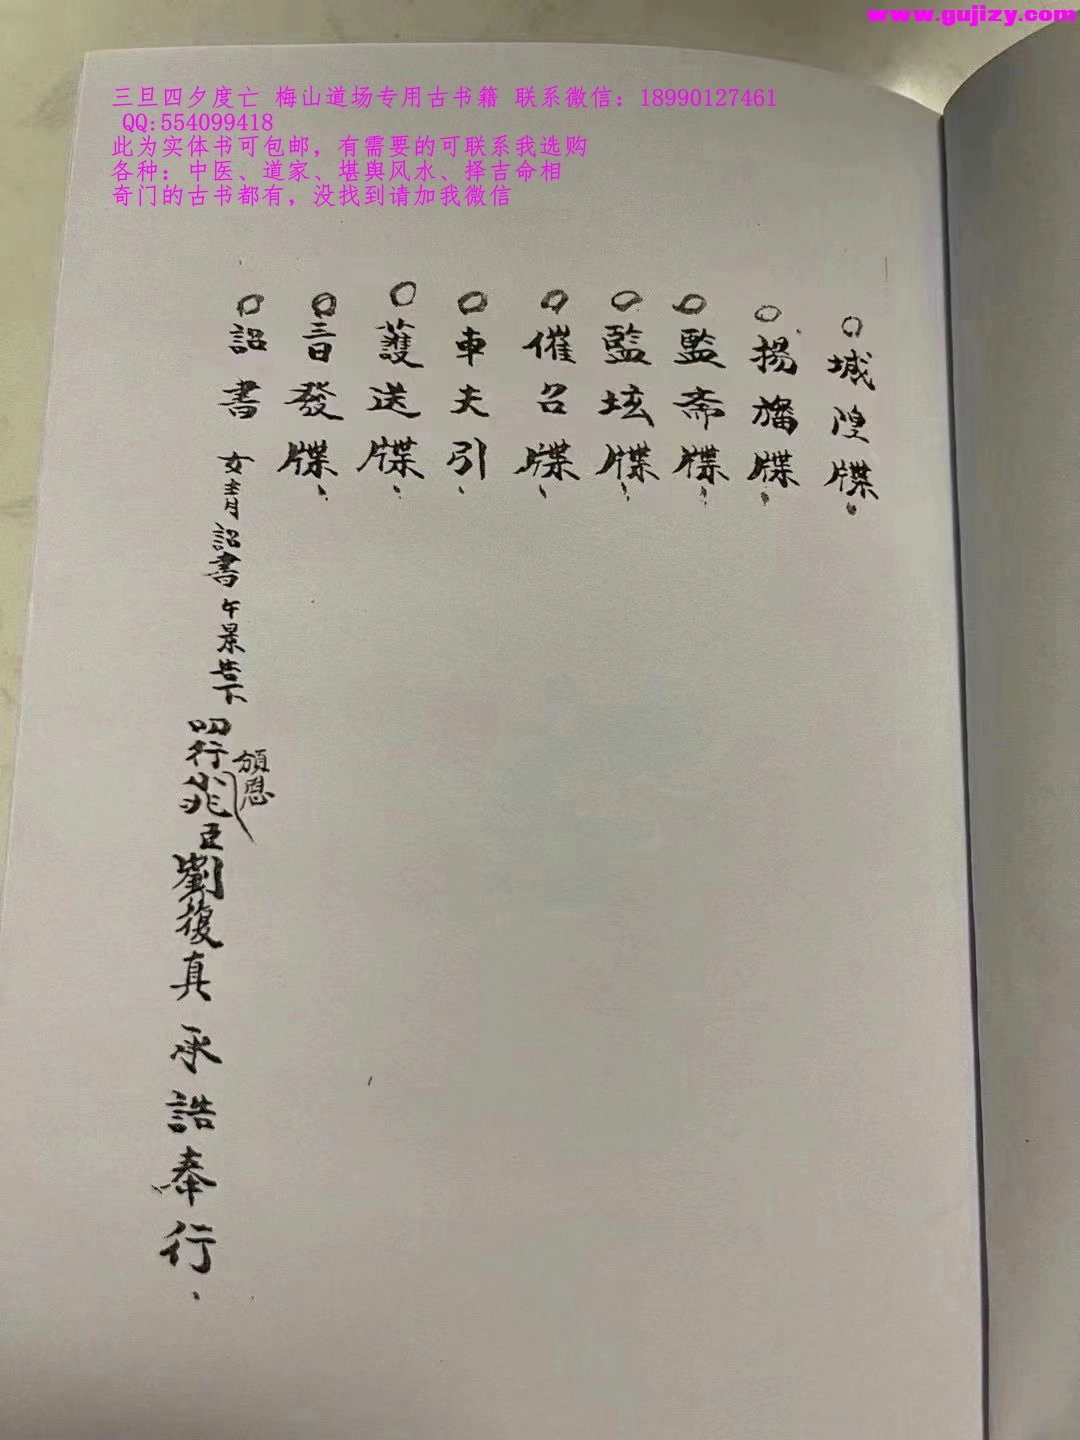 www.gujizy.com
三旦四夕度亡 梅山道场专用古书籍 联系微信：18990127461
QQ:554099418
此为实体书可包邮，有需要的可联系我选购
各种：中医、道家、堪舆风水、择吉命相
奇门的古书都有，没找到请加我微信
○城隍牒、
○揚旛牒、
○監斋牒、
○監坛牒、
○催召牒、
○車夫引、
○護送牒、
○三日發牒、
○詔書 女青詔書 午景告下 叩行 臣劉復真承誥奉行、
頒恩